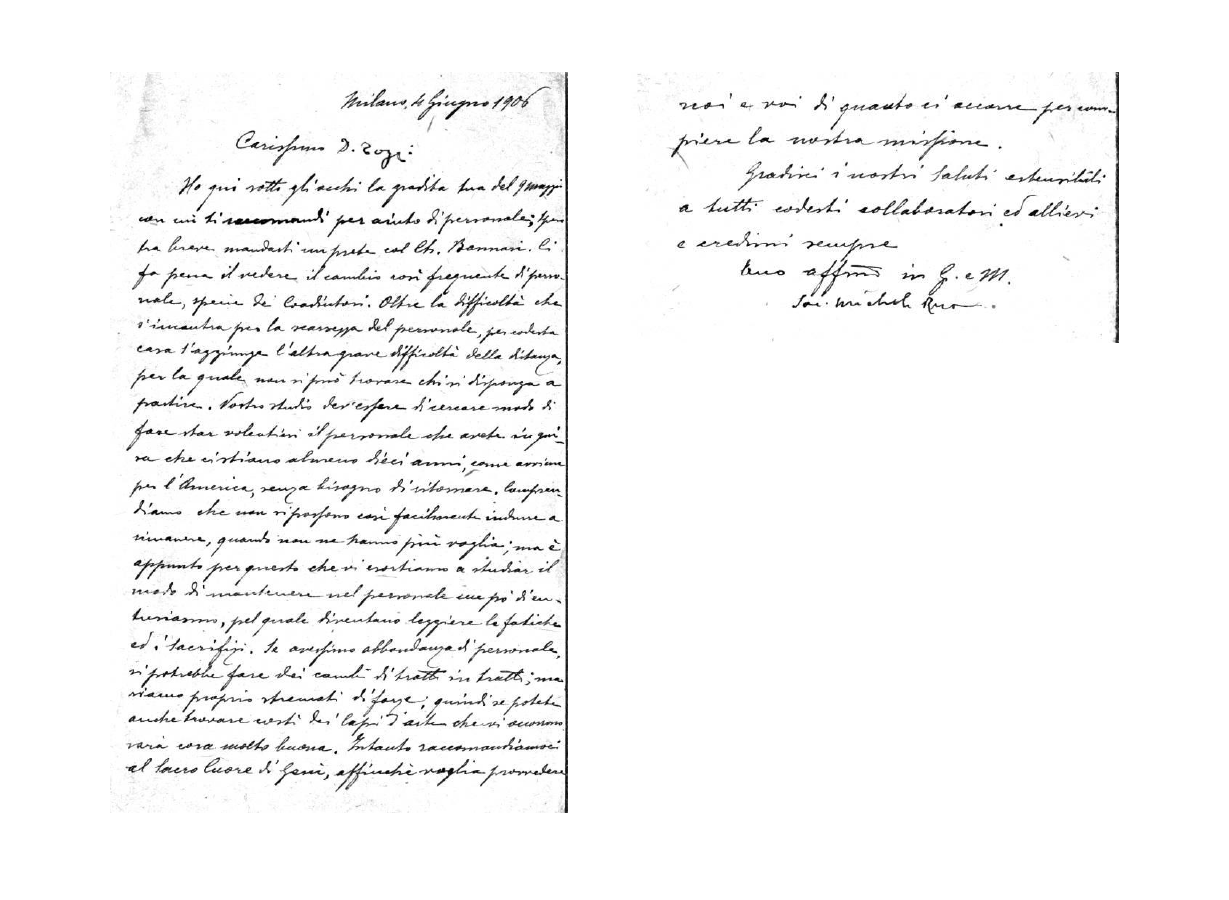 Milano, 4 Giugno 1906
Carissimo D. Zozzi:
Ho qui sotto gli occhi la gradita tua del 9 maggio
con cui ti raccomandi per aiuto di personale; spero
tra breve mandarti un prete col Ch. Bannari. Ci
fa pena il vedere il cambio così frequente di perso-
nale, specie dei Coadiutori. Oltre la difficoltà che
s'incontra per la scarsezza del personale, per codesta
casa s'aggiunge l'altra grave difficoltà della distanza,
per la quale non si può trovare chi si disponga a
partire. Vostro studio dev'essere di cercare modo di
fare star volentieri il personale che avete in gui-
sa che ci stiano almeno dieci anni, come avviene
per l'America, senza bisogno di ritornare. Compren-
diamo che non si possono così facilmente indurre a
rimanere, quando non ne hanno più voglia; ma è
appunto per questo che vi esortiamo a studiar il
modo di mantenere nel personale un pò di en-
tusiasmo, pel quale diventano leggiere le fatiche
ed i sacrifizi. Se avessimo abbondanza di personale,
si potrebbe fare dei cambi di tratti in tratti; ma
siamo proprio stremati di forze; quindi se potete
anche trovare costì dei Capi d'arte che vi occorrono
sarà cosa molto buona. Intanto raccomandiamoci
al Sacro Cuore di Gesù, affinchè voglia provvedere
noi e voi di quanto ci occorre per com-
piere la nostra missione.
Gradisci i nostri saluti estensibili
a tutti codesti collaboratori ed allievi
e credimi sempre
Tuo affmo in G. e M.
Sac. Michele Rua